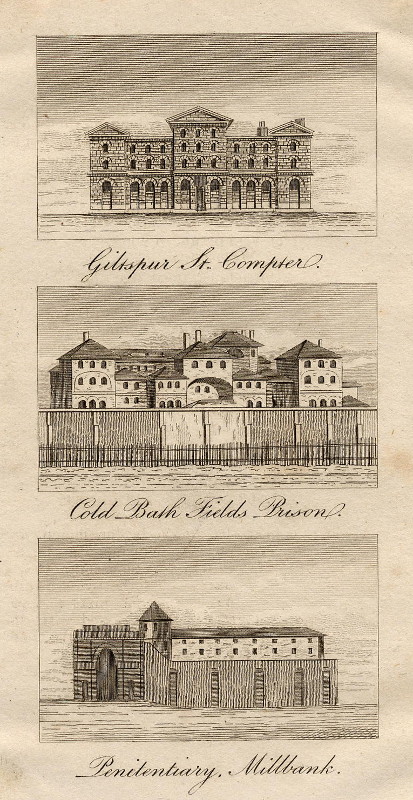 Giltspur St. Compter.
Cold Bath Fields Prison.
Penitentiary, Millbank.